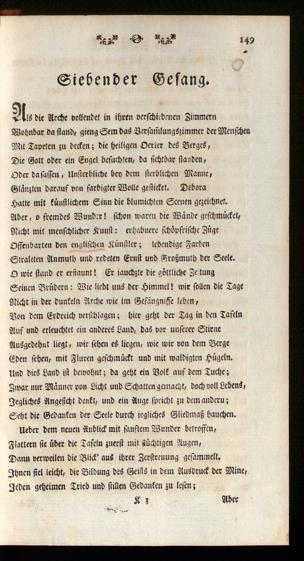 149
Siebender Gesang.
Als die Arche vollendet in ihren verschiedenen Zimmern
Wohnbar da stand, gieng Sem das Versammlungszimmer der Menschen
Mit Tapeten zu decken; die heiligen Oerter des Berges,
Die Gott oder ein Engel besuchten, da sichtbar standen,
Oder da sassen, Unsterbliche bey dem sterblichen Manne,
Glänzten darauf von farbigter Wolle gestickt. Debora
Hatte mit künstlichem Sinn die blumichten Scenen gezeichnet.
Aber, o fremdes Wunder! schon waren die Wände geschmücket,
Nicht mit menschlicher Kunst: erhabnere schöpfrische Züge
Offenbarten den englischen Künstler; lebendige Farben
Straleten Anmuth und redeten Ernst und Großmuth der Seele.
O wie stand er erstaunt! Er jauchzte die göttliche Zeitung
Seinen Brüdern: Wie liebt uns der Himmel! wir sollen die Tage
Nicht in der dunkeln Arche wie im Gefängnisse leben,
Von dem Erdreich verschlagen; hier geht der Tag in den Tafeln
Auf und erleuchtet ein anderes Land, das vor unserer Stirne
Ausgedehnt liegt, wir sehen es liegen, wie wir von dem Berge
Eden sehen, mit Fluren geschmückt und mit waldigten Hügeln.
Und dies Land ist bewohnt; da geht ein Volk auf dem Tuche;
Zwar nur Männer von Licht und Schatten gemacht, doch voll Lebens,
Jegliches Angesicht denkt, und ein Auge spricht zu dem andern;
Seht die Gedanken der Seele durch jegliches Gliedmaß hauchen.
Ueber dem neuen Anblick mit sanftem Wunder betroffen,
Flattern sie über die Tafeln zuerst mit flüchtigen Augen,
Dann verweilen die Blick' aus ihrer Zerstreuung gesammelt.
Ihnen fiel leicht, die Bildung des Geists in dem Ausdruck der Mine,
Jeden geheimen Trieb und stillen Gedanken zu lesen;
K 3 Aber